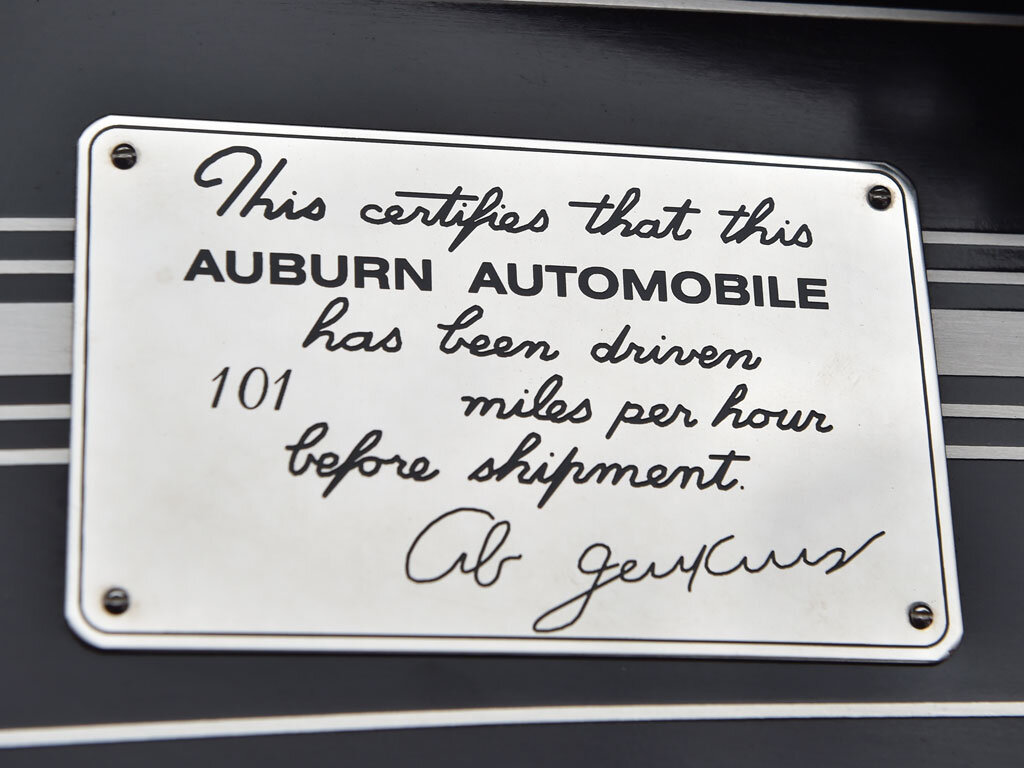 This certifies that this
AUBURN AUTOMOBILE
has been driven
101 miles per hour
before shipment.
Ab Jenkins